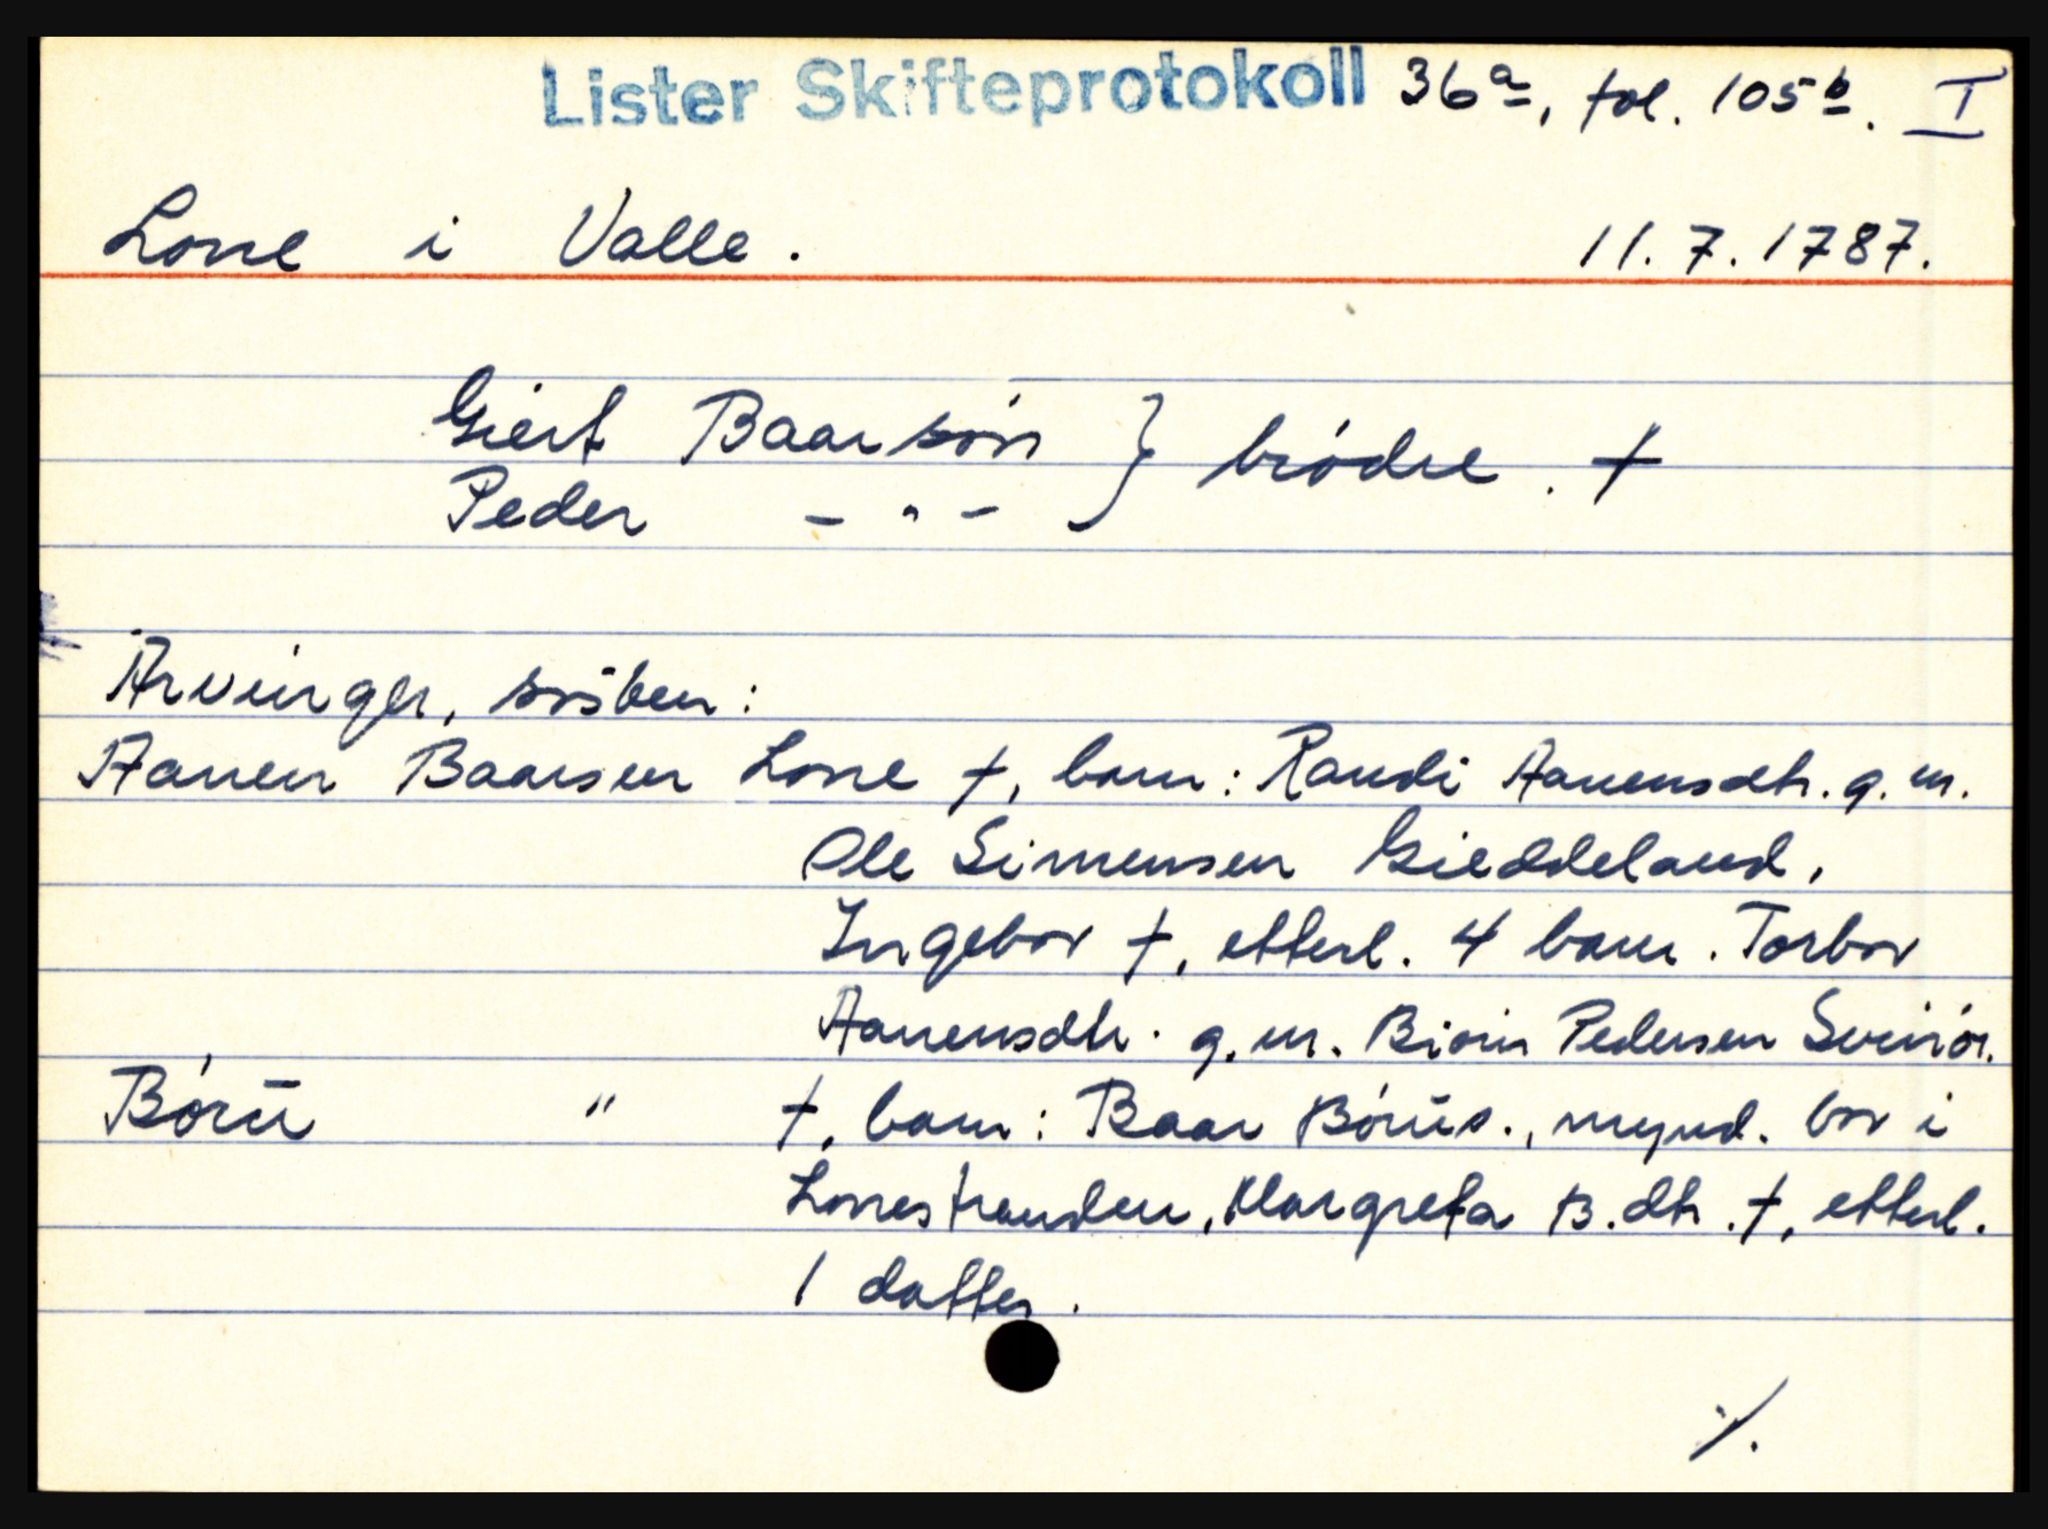 Lister Skifteprotokoll 36a, fol. 105b. I
Lone i Valle. 11.7.1787.
Giert Baarsón } bródre. †
Peder - " -
Arvinger, sósken:
Aanen Baarsen Lone †, barn: Randi Aanensdtr. g.m.
Ole Simensen Gieddeland,
Ingebor †, etterl. 4 barn. Torbor
Aanensdtr. g.m. Biórn Pedersen Svinór.
Bórū " †, barn: Baar Bórūs., mynd. bor i
Lonestranden, Margreta B.dtr. †, etterl.
1 datter.
./.